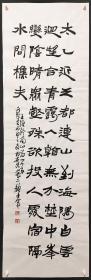 太乙近天都連山到海隅白雲
迴望合青靄入看無分野中峰
變陰晴眾壑殊欲投人處宿隔
水問樵夫